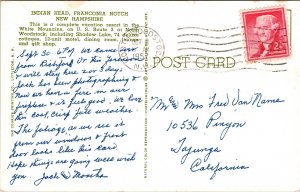 INDIAN HEAD, FRANCONIA NOTCH
NEW HAMPSHIRE
This is a complete vacation resort in the
White Mountains, on U. S. Route 3 at North
Woodstock, including Shadow Lake, 74 de luxe
cottages, 12-unit motel, dining room, lounge
and gift shop.
POST CARD
Sept 30 6 PM We came here
from Rickford
will stay here
Jack has been photographing &
Now we have a fire in our
fireplace & it feels good. We love
this cool, crisp fall weather.
The foliage, as we see it
from our windows & front
door looks like this card.
Hope things are going well with
you. Jack & Martha
Mr & Mrs Fred Van Zaman
10536 Pinyon
Tujunga
California